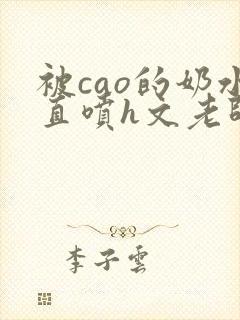 被cao的奶水
直喷h文老师
李子雲